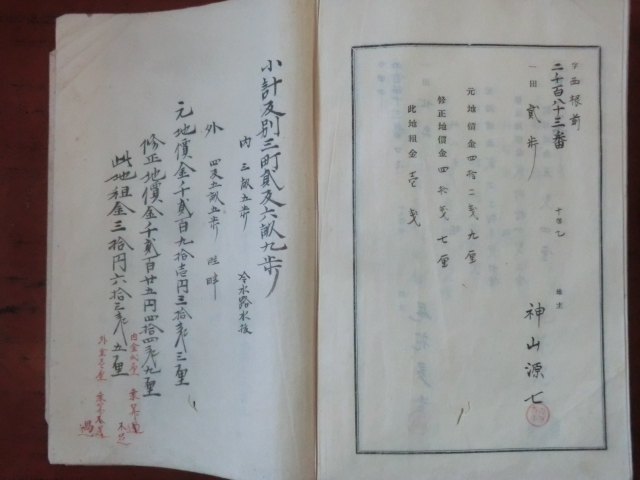 字西根前
二千百八十三番
一田 貳歩
十等乙
元地價金四拾二戋九厘
修正地價金四拾戋七厘
此地租金壱戋
地主
神山源七
小計反別三町貳反六畝九歩
内 三畝五歩 冷水路水後
外 四反五畝五歩 畦畔
元地價金千貳百九拾壱円三拾戋三厘
修正地價金千貳百廿五円四拾四戋九厘
此地租金三拾円六拾三戋五厘